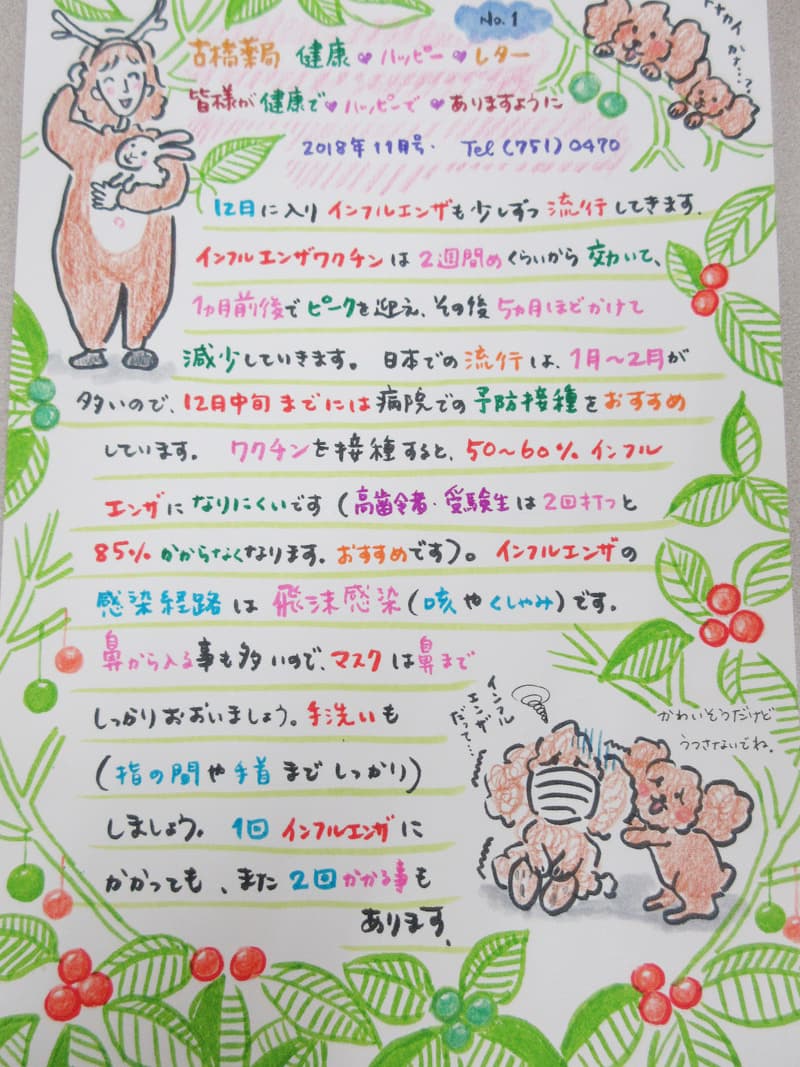 No.1
古橋薬局 健康♥ハッピー♥レター
皆様が健康で♥ハッピーで♥ありますように
2018年11月号. Tel(751)0470
12月に入りインフルエンザも少しずつ流行してきます.
インフルエンザワクチンは2週間めくらいから効いて、
1ヵ月前後でピークを迎え、その後5ヵ月ほどかけて
減少していきます。日本での流行は、1月〜2月が
多いので、12月中旬までには病院での予防接種をおすすめ
しています。ワクチンを接種すると、50〜60%インフル
エンザになりにくいです(高齢者・受験生は2回打つと
85%かからなくなります.おすすめです)。インフルエンザの
感染経路は飛沫感染(咳やくしゃみ)です.
鼻から入る事も多いので、マスクは鼻まで
しっかりおおいましょう。手洗いも
(指の間や手首までしっかり)
しましょう。1回インフルエンザに
かかっても、また2回かかる事も
あります.
インフル
エンザ
だって…
かわいそうだけど
うつさないでね.